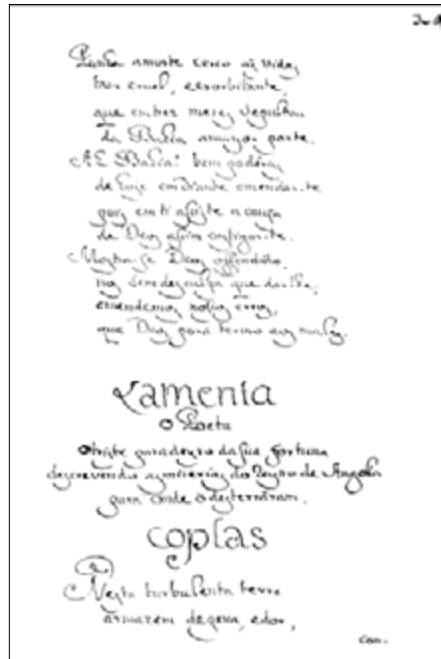 Quiz a morte cercear vidas
tam cruel, exorbitante,
que em tres mezes
da Bahia a mayor parte.
Ah Bahia! bem poderas
de hoje em diante emendar-te
pois em ti assiste a causa
de Deos assim castigar-te.
Mostra-se Deos offendido,
nos sem desculpa que dar-lhe,
emendemos nossos erros,
que Deos porá termo aos males.
Lamenta
o Poeta
o triste paradeyro da sua fortuna
descrevendo as miserias do Reyno de Angola
para onde o desterraram.
Coplas
Nesta turbulenta terra
armazem de pena, e dor,
con-